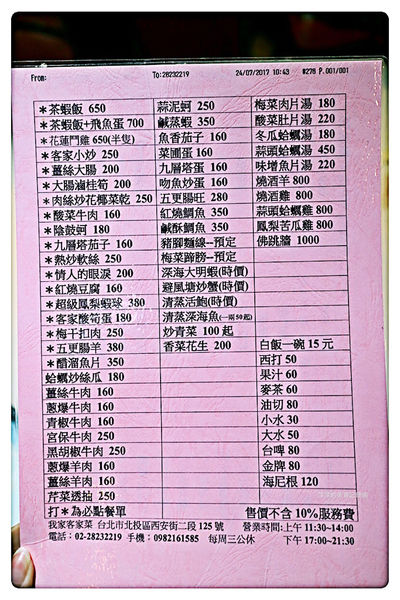 From: To:28232219 24/07/2017 10:43 #278 P.001/001
＊茶蝦飯 650
＊茶蝦飯+飛魚蛋 700
＊花蓮鬥雞 650(半隻)
＊客家小炒 250
＊薑絲大腸 200
＊大腸滷桂筍 200
＊肉絲炒花椰菜乾 250
＊酸菜牛肉 160
＊陰鼓蚵 180
＊九層塔茄子 160
＊熱炒軟絲 250
＊情人的眼淚 200
＊紅燒豆腐 160
＊超級鳳梨蝦球 380
＊客家酸筍蛋 180
＊梅干扣肉 250
＊五更腸羊 380
＊醋溜魚片 350
蛤蠣炒絲瓜 180
薑絲牛肉 160
蔥爆牛肉 160
青椒牛肉 160
宮保牛肉 250
黑胡椒牛肉 250
蔥爆羊肉 160
薑絲羊肉 160
芹菜透抽 250
打＊為必點餐單
蒜泥蚵 250
鹹蒸蝦 350
魚香茄子 160
菜圃蛋 160
九層塔蛋 160
吻魚炒蛋 160
五更腸旺 280
紅燒鯛魚 350
鹹酥鯛魚 350
豬腳麵線–預定
梅菜蹄膀–預定
深海大明蝦(時價)
避風塘炒蟹(時價)
清蒸活鮑(時價)
清蒸深海魚(一兩50起)
炒青菜 100 起
香菜花生 200
梅菜肉片湯 180
酸菜肚片湯 220
冬瓜蛤蠣湯 180
蒜頭蛤蠣湯 450
味增魚片湯 220
燒酒羊 800
燒酒雞 800
蒜頭蛤蠣雞 800
鳳梨苦瓜雞 800
佛跳牆 1000
白飯一碗 15 元
西打 50
果汁 60
麥茶 60
油切 80
小水 30
大水 50
台啤 80
金牌 80
海尼根 120
售價不含 10%服務費
我家客家菜 台北市北投區西安街二段 125 號 營業時間:上午 11:30~14:00
電話：02-28232219 手機：0982161585 每周三公休 下午 17:00~21:30